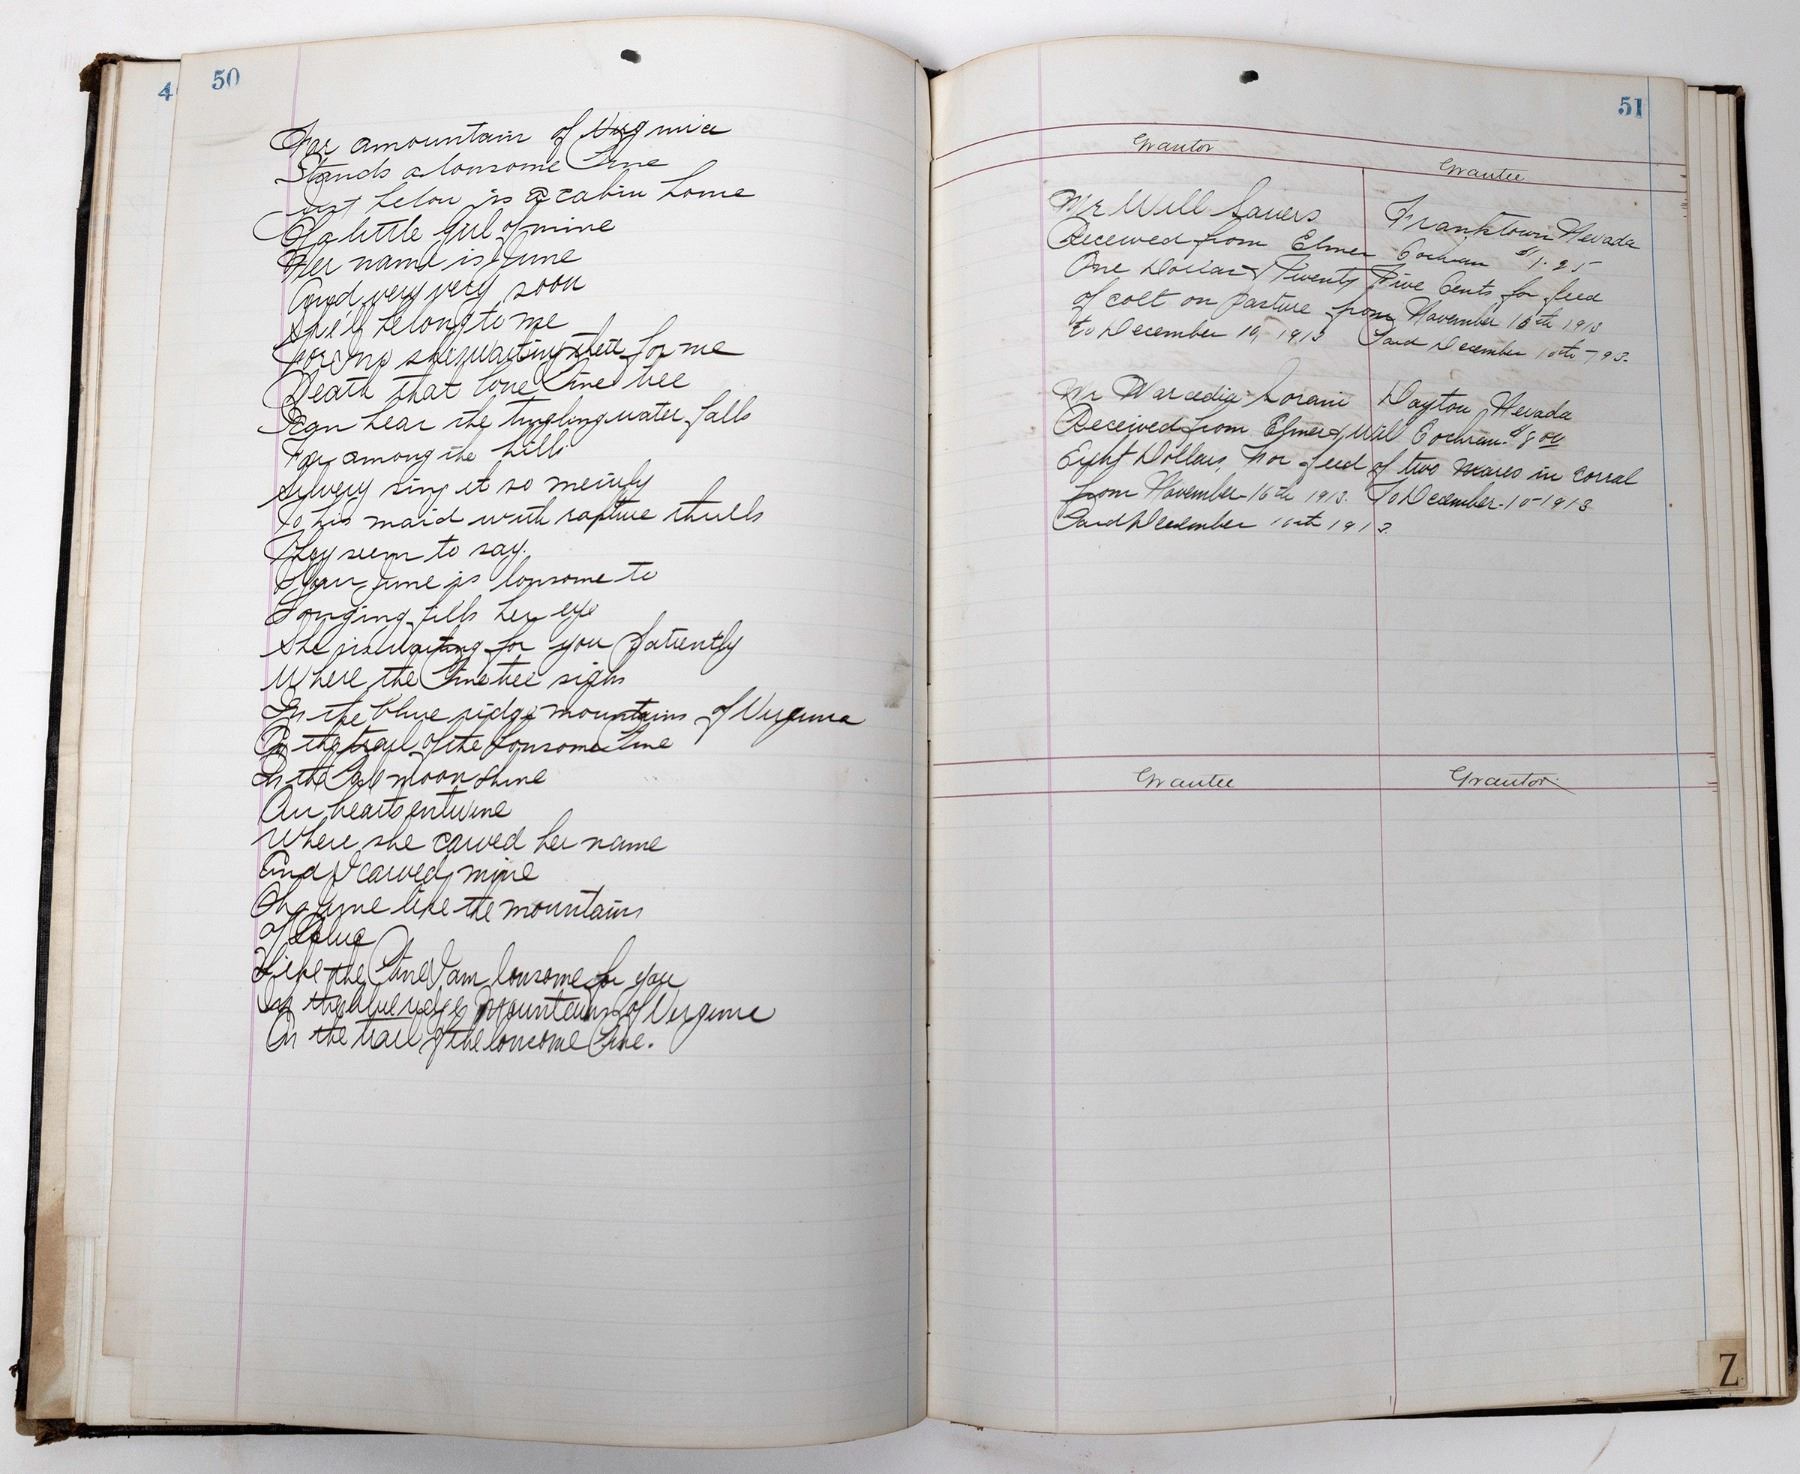 4
50
On a mountain of Virginia
Stands a lonsome Pine
Just below is a cabin home
Of a little Girl of mine
Her name is June
And very very soon
She'll belong to me
For I no she waiting there for me
Neath that lone Pine tree
I can hear the tingling water falls
Far among the hills
sing it so merrily
To his maid with rapture thrills
They seem to say.
Your June is lonsome to
Longing fills her eye
She is waiting for you patiently
Where the Pine tree sighs
In the blue ridge mountains of Virginia
On the trail of the Lonsome Pine
In the Pal moon shine
Our hearts entwine
Where she carved her name
And I carved mine
Oh June like the mountains
of Blue
Like the Pine I am lonsome for you
In the blue ridge Mountains of Virginia
On the trail of the lonsome Pine.
51
Grantor Grantee
Mr Will Sauers Franktown Nevada
Received from Elmer Cochran $1.25
One Dollar & Twenty Five Cents for feed
of colt on pasture from November 16th 1913
to December 10, 1913 Paid December 10th
Mr Dayton, Nevada
Received from Elmer & Will Cochran. $8 00
Eight Dollars, For feed of two mares in corral
from November-16th 1913. To December-10-1913
Paid December 10th 1913.
Grantee Grantor
Z